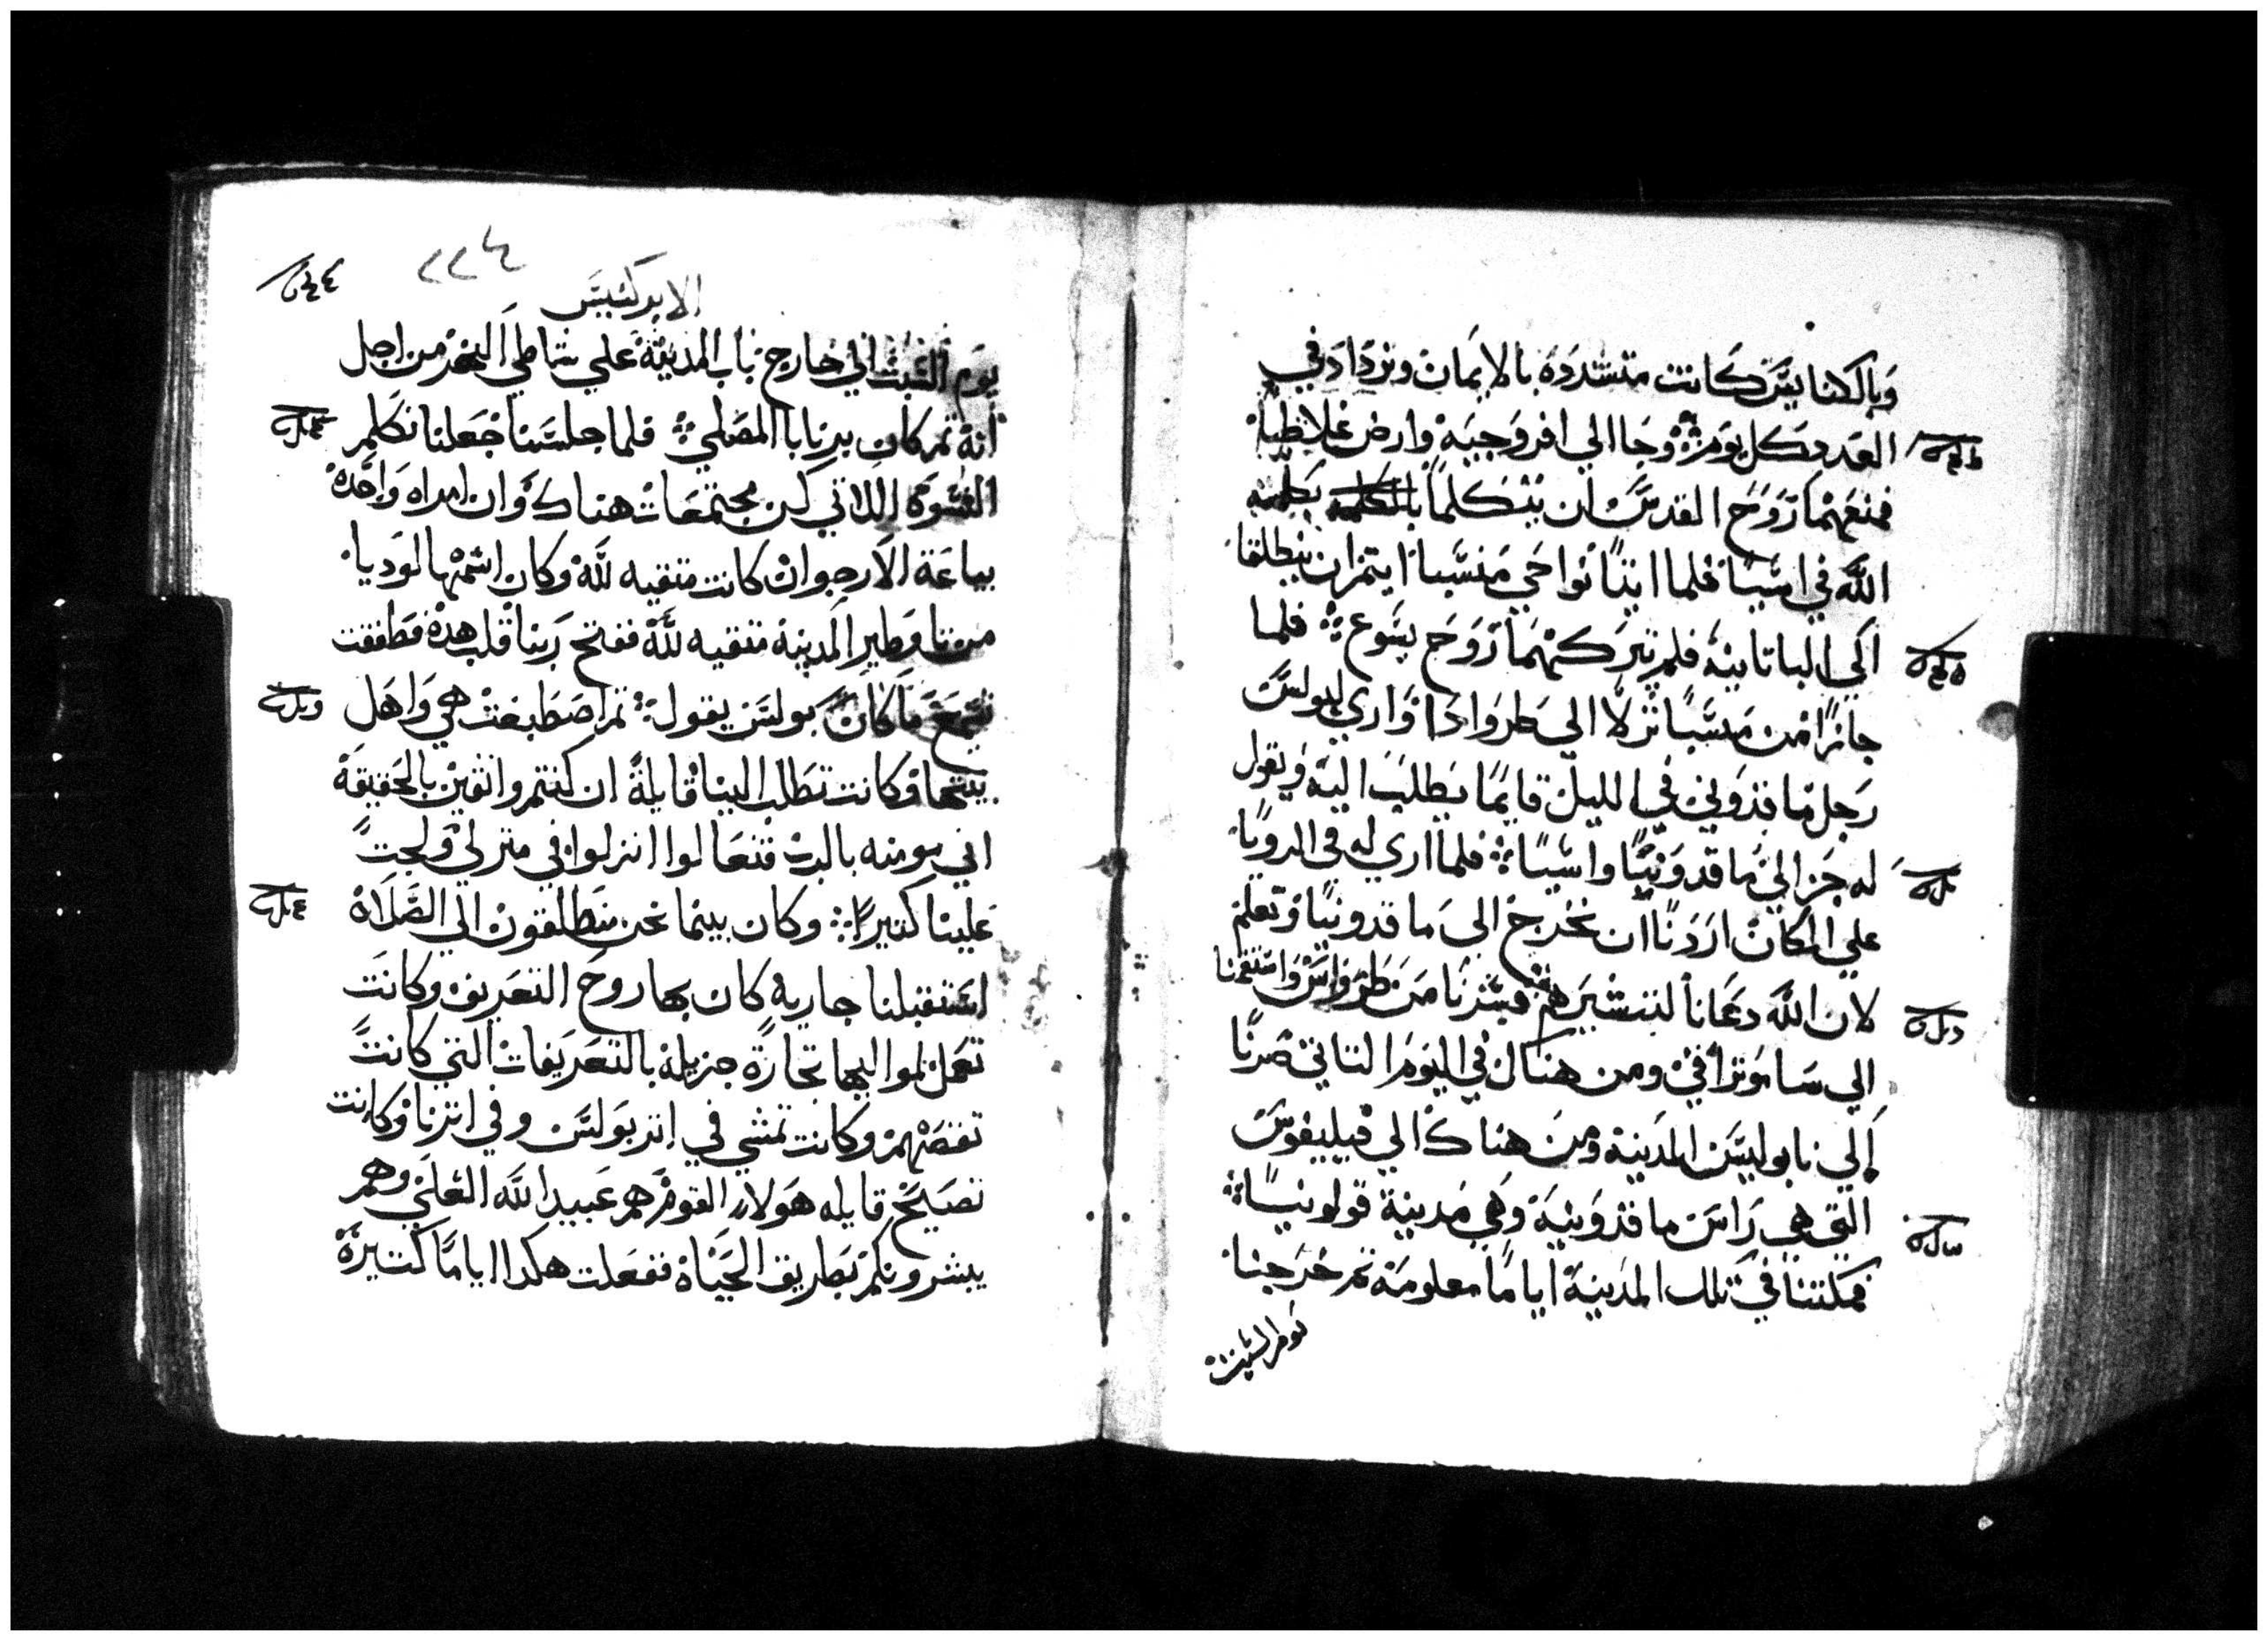 وبالكنايس كانت متشدده بالايمان وتزداد في
العدد كل يوم ۞ وجاا الي افروجيه وارض غلاطيا
فمنعهما روح القدس ان يتكلما بكلمة
الله في اسيا فلما اتيا نواحي منسيا ايتمران ينطلقا
الي الباتانية فلم يتركهما روح يسوع ۞ فلما
جازا من ميسيا نزلا الي طروادا واري لبولس
رجل ماقدوني في الليل قايما يطلب اليه ويقول
له جز الي ماقدونيا واسيا ۞ فلما اري له في الرويا
علي المكان اردنا ان نخرج الي ماقدونيا وتعلم
لان الله دعانا لنبشرهم ۞ فسرنا من طرواس واستقمنا
الي ساموتراقي ومن هناك في اليوم التاني صرنا
الي نابوليس المدينة ومن هناك الي فيليبفوس
التي هي راس ماقدونية وهي مدينة قولونيا ۞
فمكتنا في تلك المدينة اياما معلومة تم خرجنا
يوم السبت
٢٢٤
الابركسيس
يوم السبت الي خارج باب المدينة علي شاطي البحر من اجل
انه تم كان يرنابا المصلي ۞ فلما جلسنا جعلنا نكلم
النسوة اللاتي كن مجتمعات هناك وان امراه واحدة
بياعة الارجوان كانت متقيه لله وكان اسمها لوديا
من تياوطير المدينة متقيه لله ففتح ربنا قلب هده فطفقت
تسمع ما كان بولس يقول ۞ تم اصطبغت هي واهل
بيتها وكانت تطلب الينا قايلة ان كنتم واتقين بالحقيقة
اني مومنه بالرب فتعالوا انزلوا في منزلي ولجت
علينا كتيرا ۞ وكان بينما نحن منطلقون الي الصلاة
استقبلنا جاريه كان بها روح التعريف وكانت
تعمل لمواليها تجارة جزيلة بالتعريفات التي كانت
تقصهم وكانت تمشي في اتر بولس وفي اترنا وكانت
تصيح قايله هولاء القوم هم عبيد الله العلي وهم
يبشرونكم بطريق الحياة ففعلت هكدا اياما كتيرة